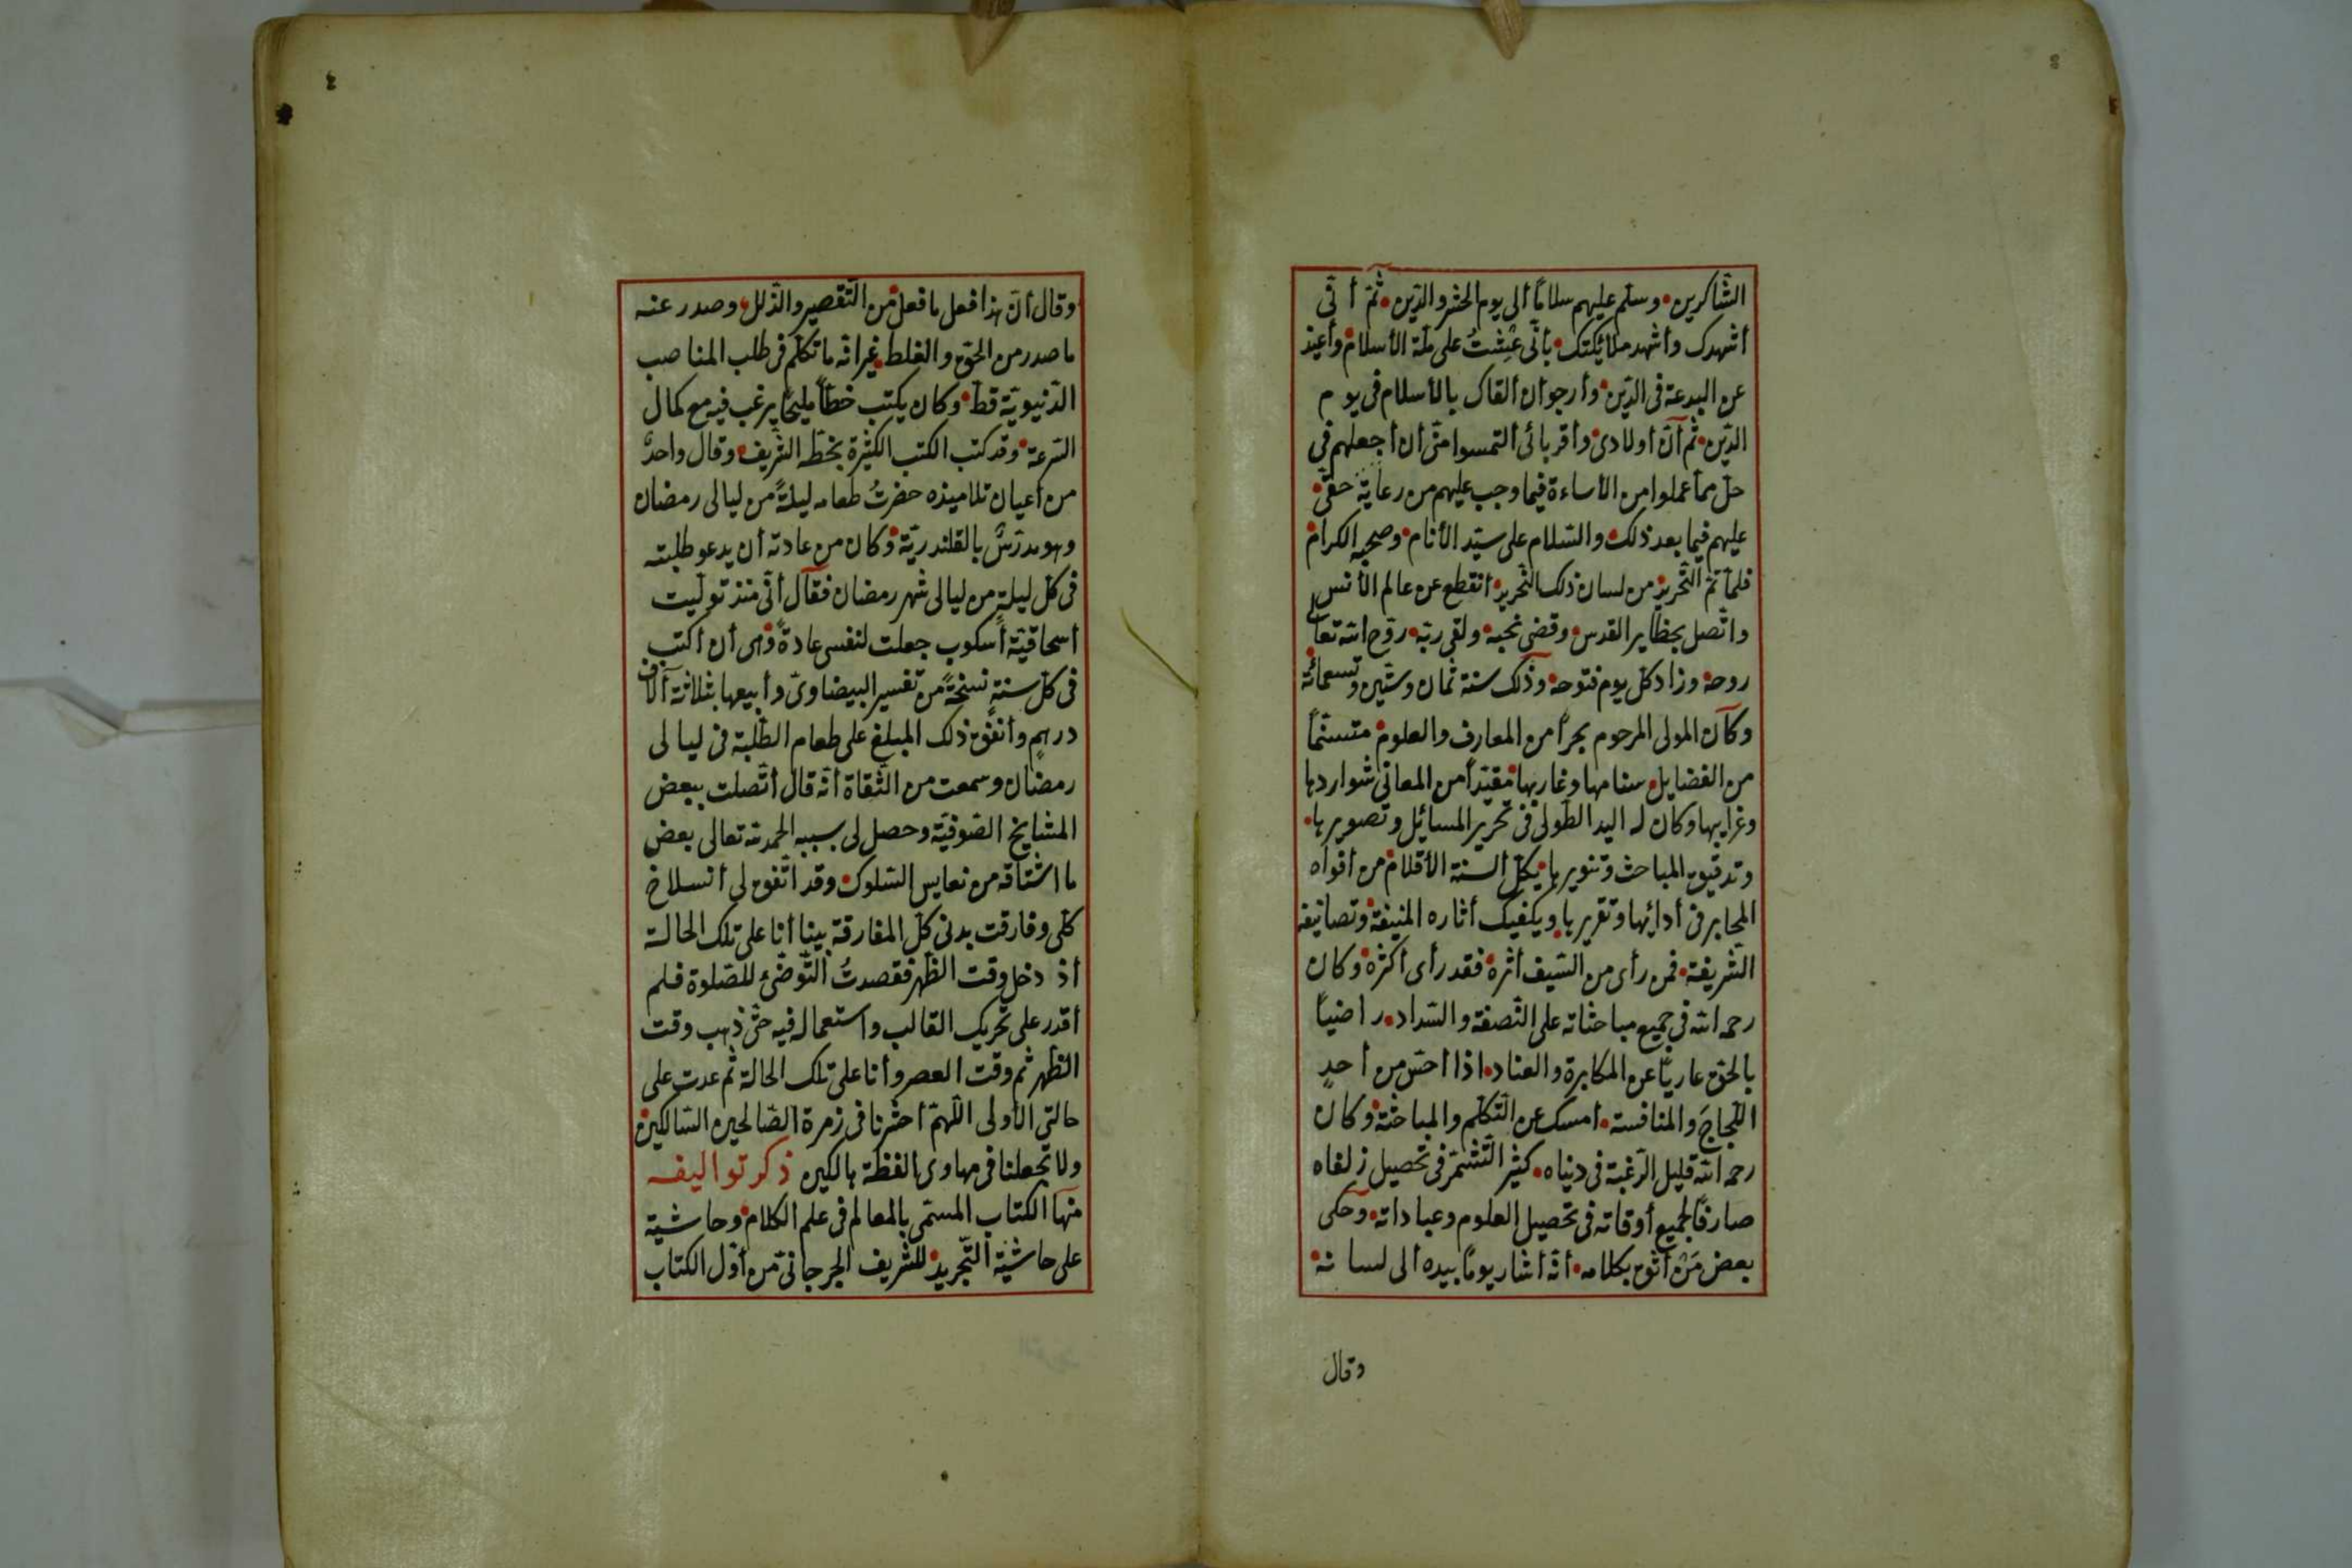 الشاكرين وسلم عليهم سلاما ألى يوم الحشر والدين ثم أنى
أشهدك وأشهد ملائكتك بأنى عشت على ملة الأسلام وأعيذ
عن البدعة فى الدين وأرجو أن ألقاك بالأسلام فى يوم
الدين ثم أن أولادى وأقربائى ألتمسوا منى أن أجعلهم فى
حل مما عملوا من الأساءة فيما وجب عليهم من رعاية حقى
عليهم فيما بعد ذلك والسلام على سيد الأنام وصحبه الكرام
فلما تم التحرير من لسان ذلك النحرير أنقطع عن عالم الأنس
واتصل بحظاير القدس وقضى نحبه ولقى ربه روح الله تعالى
روحه وزاد كل يوم فتوحه وذلك سنة ثمان وستين وتسعمائة
وكان المولى المرحوم بحرا من المعارف والعلوم متسنما
من الفضايل سنامها وغاربها مقيدا من المعانى شواردها
وغرايبها وكان له اليد الطولى فى تحرير المسائل وتصويرها
وتدقيق المباحث وتنويرها يكل ألسنة الأقلام من أفواه
المحابر فى أدائها وتقريرها ويكفيك أثاره المنيفة وتصانيفه
الشريفة فمن رأى من السيف أثره فقد رأى أكثره وكان
رحمه الله فى جميع مباحثاته على النصفة والسداد راضيا
بالحق عاريا عن المكابرة والعناد اذا أحس من أحد
اللجاج والمنافسة أمسك عن التكلم والمباحثة وكان
رحمه الله قليل الرغبة فى دنياه كثير التشمر فى تحصيل زلفاه
صارفا لجميع أوقاته فى تحصيل العلوم وعباداته وحكى
بعض من أثق بكلامه أنه أشار يوما بيده ألى لسانه
وقال
وقال أن هذا فعل ما فعل من التقصير والذلل وصدر عنه
ما صدر من الحق والغلط غير انه ما تكلم فى طلب المناصب
الدنيوية قط وكان يكتب خطا مليحا يرغب فيه مع كمال
السرعة وقد كتب الكتب الكثيرة بخطه الشريف وقال واحد
من أعيان تلاميذه حضرت طعامه ليلة من ليالى رمضان
وهو مدرس بالقلندرية وكان من عادته أن يدعو طلبته
فى كل ليلة من ليالى شهر رمضان فقال أنى منذ توليت
أسحاقية أسكوب جعلت لنفسى عادة وهى أن أكتب
فى كل سنة نسخة من تفسير البيضاوى وأبيعها بثلاثة آلاف
درهم وأنفق ذلك المبلغ على طعام الطلبة فى ليالى
رمضان وسمعت من الثقاة أنه قال أتصلت ببعض
المشايخ الصوفية وحصل لى بسببه الحمد لله تعالى بعض
ما اشتاقه من نعايس السلوك وقد اتفق لى أنسلاخ
كلى وفارقت بدنى كل المفارقة بينا أنا على تلك الحالة
أذ دخل وقت الظهر فقصدت التوضئ للصلوة فلم
أقدر على تحريك القالب واستعماله فيه حتى ذهب وقت
الظهر ثم وقت العصر وأنا على تلك الحالة ثم عدت على
حالتى الأولى اللهم أحشرنا فى زمرة الصالحين السالكين
ولا تجعلنا فى مهاوى الغظة هالكين ذكر تواليفه
منها الكتاب المسمى بالمعالم فى علم الكلام وحاشية
على حاشية التجريد للشريف الجرجانى من أول الكتاب